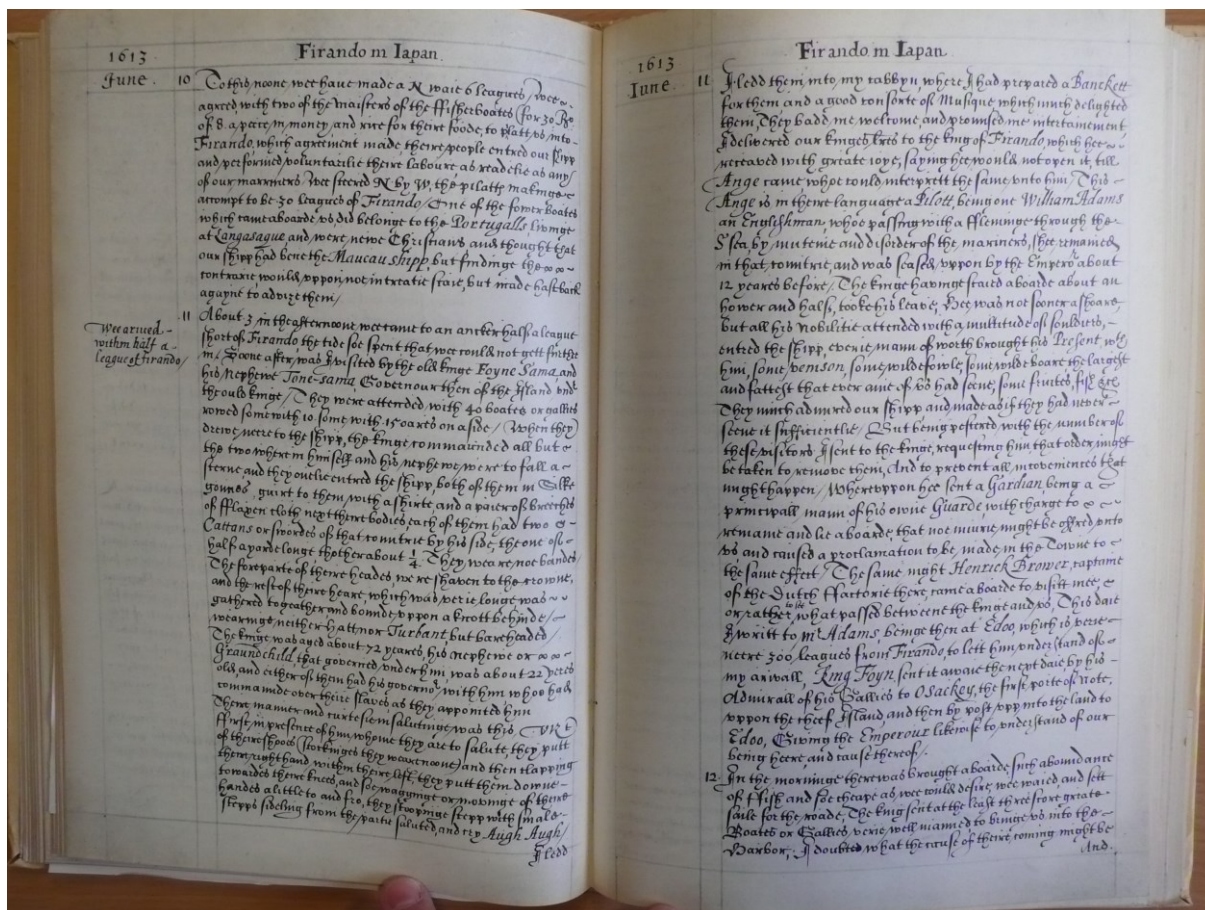 1613
Firando in Iapan.
June. 10 To this noone wee have made a N waie 6 leagues / wee
agreed with two of the maisters of the ffisherboates (for 30 Ro
of 8. a peece in money, and rice for theire foode, to pilatt vs into
Firando, which agreement made, theire people entred our shipp
and performed voluntarilie theire laboure, as readelie as any
of our marriners / Wee steered N by W, the pilatts makinge
accompt to be 30 leagues of Firando / One of the fower boates
which came aboarde vs did belonge to the Portugalls livinge
at Langasaque and were newe Christians and thought that
our shipp had bene the Maucau shipp, but findinge the
contrarie, would vppon no intreatie staie, but made hast back
agayne to advize them /
11 About 3 in the afternoone wee came to an ancker half a league
Wee arived
within half a
league of firando /
short of Firando the tide soe spent that wee could not gett further
in / Soone after, was I visited by the old kinge Foyne Sama, and
his Nephewe Tone-sama Governour then of the Island vnder
the ould kinge / They were attended with 40 boates or gallies
rowed some with 10. some with 15 oares on a side / When they
drewe neere to the shipp, the kinge commaunded all but
the two wherein himself and his nephewe were to fall a
sterne and they onelie entred the shipp, both of them in Silke
gounes, guirt to them, with a shirte and a paier of breeches
of fflaxen cloth next there bodies each of them had two
Cattans or swordes of that countrie by his side, the one of
half a yarde longe thother about ¼ They weare not bandes
The foreparte of theire heades were shaven to the crowne,
and the rest of theire heare, which was verie longe was
gathered togeather and bounde vppon a knott behinde /
wearinge neither hatt nor Turbant, but bareheaded /
The kinge was aged about 72 yeares, his nephewe or
Graundchild, that governed vnder him was about 22 yeres
old, and either of them had his governor with him whoe had
commannde over theire slaves as they appointed him
There manner and curtesie in salutinge was this,
ffirst, in presence of him whome they are to salute, they putt
of theire shooes (stockinges they weare none) and then clapping
them right hand within theire left, they putt them downe
towardes theire knees, and soe wagginge or movinge of theire
handes a little to and fro, they stoopinge stepp with smale
stepps sideling from the partie saluted, and cry Augh Augh /
I ledd
1613
Firando in Iapan.
Iune. 11 I ledd them into my cabbyn, where I had prepared a Banckett
for them and a good consorte of Musique which much delighted
them, They badd me welcome, and promised me intertainement
I delivered our kinges lres to the king of Firando, which hee
receaved with greate ioye, saying hee would not open it, till
Ange came whoe could interprett the same vnto him / This
Ange is in there language a Pilott, being one William Adams
an Englishman, whoe passing with a fflemminge through the
S sea, by mutenie and disorder of the mariners, shee remained
in that countrie, and was seased vppon by the Emperor about
12 yeares before / The kinge havinge staied aboarde about an
hower and half, tooke his leave, Hee was not sooner ashoare
but all his Nobilitie attended with a multitude of souldiers,
entred the shipp, everie mann of worth brought his Present with
him, some venison, some wildefowle, some wilde boare the largest
and fattest that ever anie of vs had seene, some fruites, fish &c
They much admired our shipp and made as if they had never
seene it sufficientlie / But being pestered with the number of
these visitors I sent to the kinge, requesting him that order might
be taken to remove them, And to prevent all inconveniences that
might happen / Wherevppon hee sent a Gardian, being a
principall mann of his owne Guarde with charge to
remaine and lie aboarde, that noe iniurie might be offred vnto
vs and caused a proclamation to be made in the Towne to
the same effect / The same night Henrick Brower, captaine
of the Dutch ffactorie there, came aboarde to visitt mee,
or rather to see what passed betweene the kinge and vs, This daie
I writt to mr Adams, beinge then at Edoo, which is verie
neere 300 leagues from Firando, to lett him vnderstand of
my arivall, King Foyn, sent it awaie the next daie by his
Admirall of his Gallies to Osackey, the first porte of note,
vppon the cheef Island, and then by post vpp into the land to
Edoo, Giving the Emperour likewise to vnderstand of our
being heere and cause thereof /
12. In the morninge there was brought aboarde such aboundance
of ffish and soe cheape as wee would desire, wee waied and sett
saile for the roade, The king sent at the least threescore greate
Boates or Gallies verie well manned to bringe vs into the
Harbor, I doubted what the cause of theire coming might be
And.